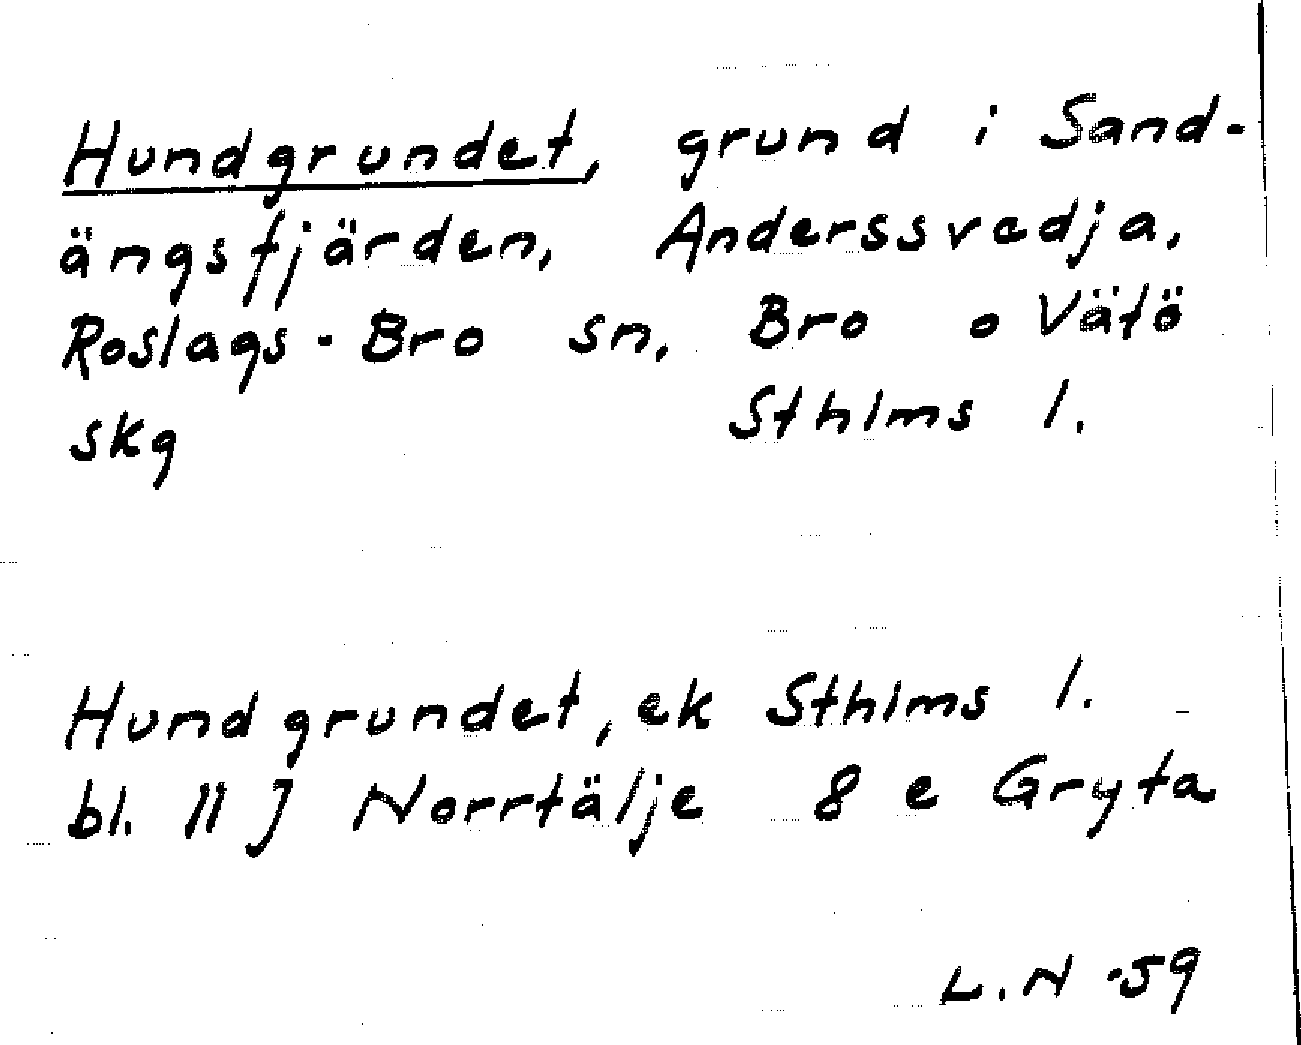 Hundgrundet, grund i Sand-
ängsfjärden, Anderssvedja,
Roslags-Bro sn, Bro o Vätö
skg Sthlms l.
Hundgrundet, ek Sthlms l.
bl. 11 J Norrtälje 8 e Gryta
L.N -59